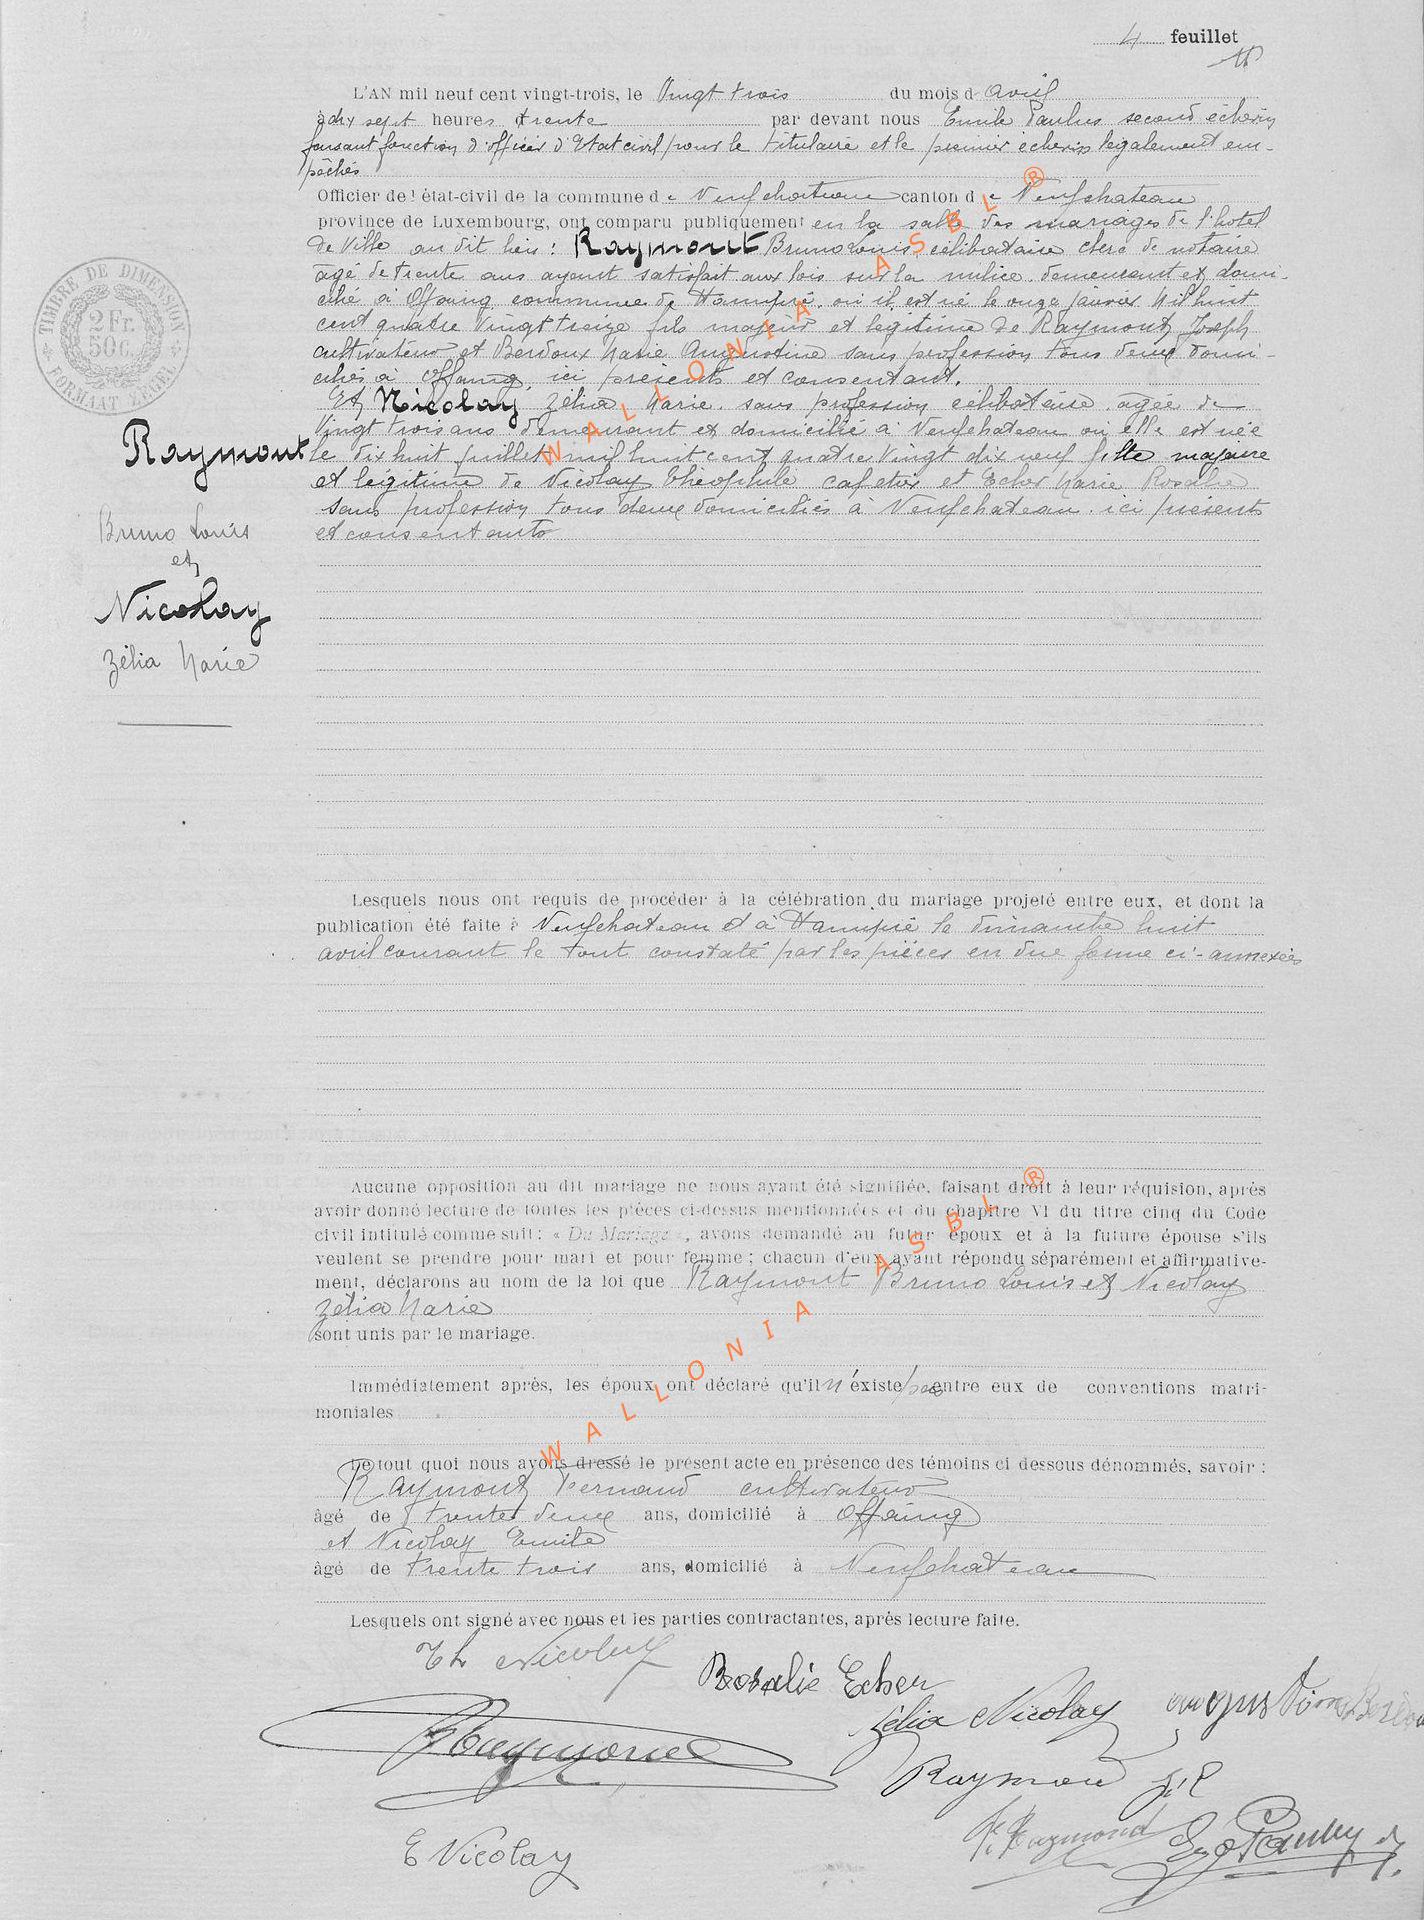 4 feuillet
L'AN mil neuf cent vingt-trois, le Vingt trois du mois d avril
à dix sept heures trente par devant nous Emile Paulus second échevin
faisant fonction d'officier d'Etat civil pour le titulaire et le premier échevin légalement em-
pêchés
Officier de l'état-civil de la commune de Neufchateau canton de Neufchateau
province de Luxembourg, ont comparu publiquement en la salle des mariages de l'hotel
de Ville au dit lieu : Raymont Bruno Louis célibataire clerc de notaire
agé de trente ans ayant satisfait aux lois sur la milice demeurant et domi-
cilié à Offaing commune de Hamipré où il est né le onze janvier Mil huit
cent quatre Vingt treize fils majeur et légitime de Raymont Joseph
cultivateur et Berdoux Marie Augustine sans profession tous deux domi-
ciliés à Offaing, ici présents et consentant.
Et Nicolay Zélia Marie sans profession célibataire agée de
Vingt trois ans demeurant et domiciliée à Neufchateau où elle est née
le dix huit juillet mil huit cent quatre Vingt dix neuf fille majeure
et légitime de Nicolay Théophile cafetier et Echer Marie Rosalie
sans profession tous deux domiciliés à Neufchateau ici présents
et consentants
TIMBRE DE DIMENSION
2 Fr.
50 c.
FORMAAT ZEGEL
Raymont
Bruno Louis
et
Nicolay
Zélia Marie
Lesquels nous ont requis de procéder à la célébration du mariage projeté entre eux, et dont la
publication été faite à Neufchateau et à Hamipré le dimanche huit
avril courant le tout constaté par les pièces en due forme ci-annexées
Aucune opposition au dit mariage ne nous ayant été signifiée, faisant droit à leur réquision, après
avoir donné lecture de toutes les pièces ci-dessus mentionnées et du chapitre VI du titre cinq du Code
civil intitulé comme suit : « Du Mariage », avons demandé au futur époux et à la future épouse s'ils
veulent se prendre pour mari et pour femme ; chacun d'eux ayant répondu séparément et affirmative-
ment, déclarons au nom de la loi que Raymont Bruno Louis et Nicolay
Zélia Marie
sont unis par le mariage.
Immédiatement après, les époux ont déclaré qu'il n'existe pas entre eux de conventions matri-
moniales
De tout quoi nous avons dressé le présent acte en présence des témoins ci dessous dénommés, savoir :
Raymont Fernand cultivateur
âgé de trente deux ans, domicilié à Offaing
et Nicolay Emile
âgé de trente trois ans, domicilié à Neufchateau
Lesquels ont signé avec nous et les parties contractantes, après lecture faite.
Th Nicolay
Rosalie Echer
Zélia Nicolay
Augustine Berdoux
Raymond
Raymond
F. Raymond
E Nicolay
WALLONIA ASBL ®
WALLONIA ASBL ®